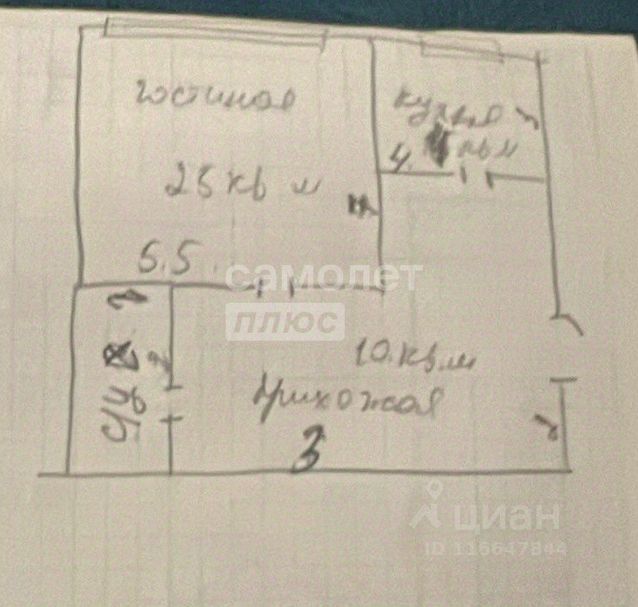 гостиная
25 кв м
5.5.
кухня
4. кв м
самолет
плюс
10.кв.м
прихожая
3
с/уз
циан
ID 116647844